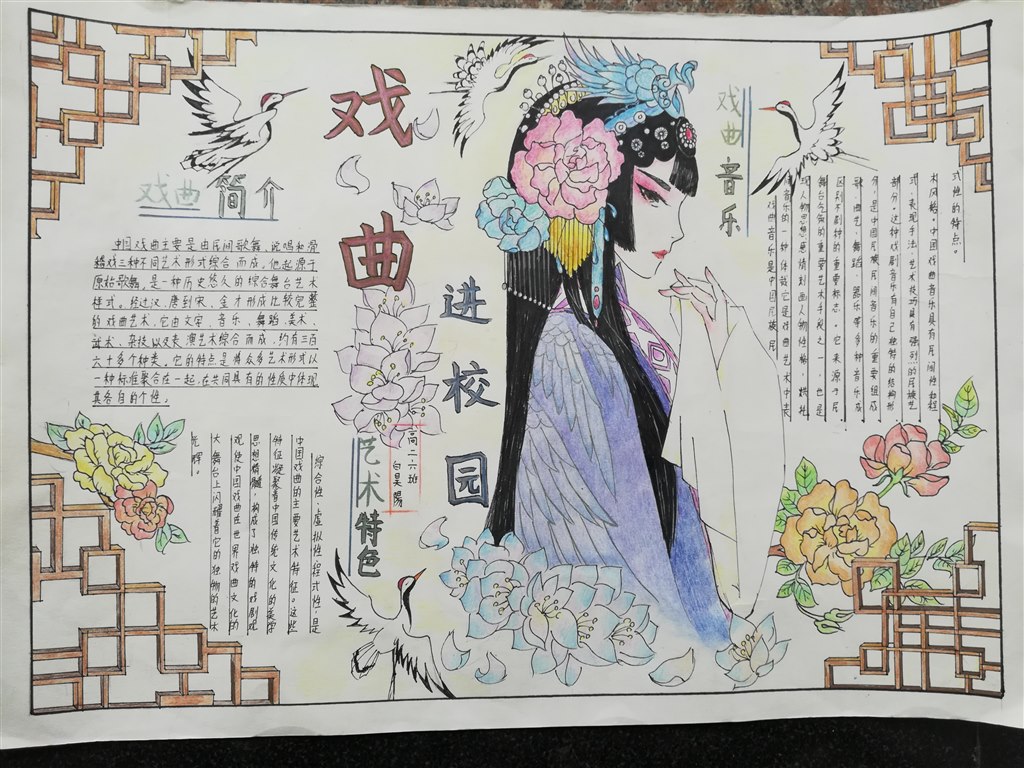 戏曲
进校园
高二·六班
白昊陽
戏曲简介
中国戏曲主要是由民间歌舞、说唱和滑
稽戏三种不同艺术形式综合而成。他起源于
原始歌舞,是一种历史悠久的综合舞台艺术
样式。经过汉、唐到宋、金才形成比较完整
的戏曲艺术,它由文学、音乐、舞蹈、美术、
武术、杂技以及表演艺术综合而成,约有三百
六十多个种类。它的特点是将众多艺术形式以
一种标准聚合在一起,在共同具有的性质中体现
其各自的个性。
艺术特色
综合性、虚拟性、程式性,是
中国戏曲的主要艺术特征。这些
特征,凝聚着中国传统文化的美学
思想精髓,构成了独特的戏剧观,
观,使中国戏曲在世界戏曲文化的
大舞台上闪耀着它的独特的艺术
光辉。
戏曲音乐
戏曲音乐是中国民族民
间音乐的一种体裁它是戏曲艺术中表
现人物思想感情刻画人物性格,烘托
舞台气氛的重要艺术手段之一,也是
区别不同剧种的重要标志。它来源于民
歌、曲艺、舞蹈、器乐等多种音乐成
分,是中国民族民间音乐的重要组成
部分。这种戏剧音乐有自己独特的结构形
式、表现手法、艺术技巧具有强烈的民族艺
术风格。中国戏曲音乐具有民间性和程
式性的特点。